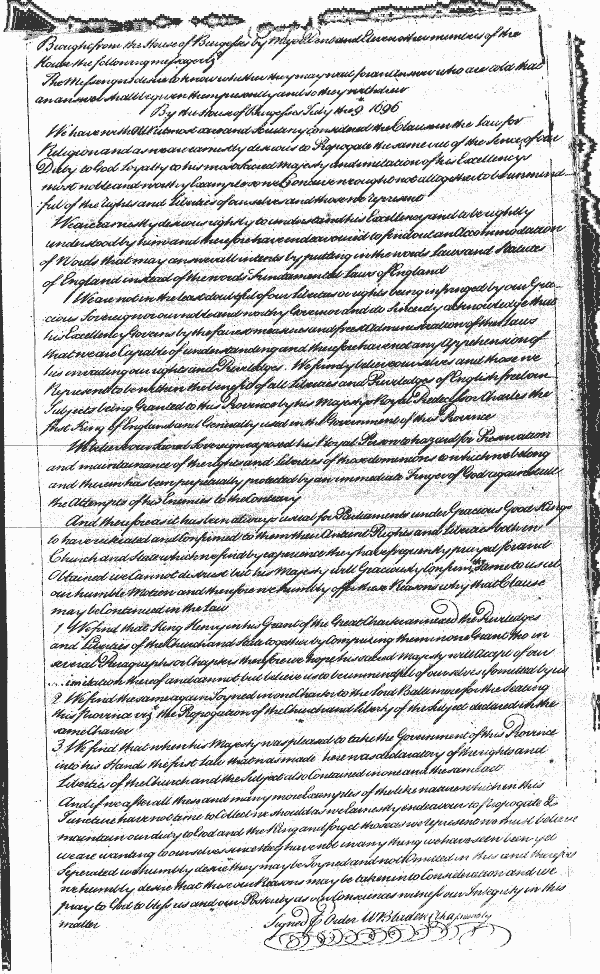 Brought from the House of Burgesses by Mayor and Eleven other members of the
House the following message
The Messengers desire to know whether they may wait for an Answer who are told that
an answer shall be given them presently and so they withdrew
By the House of Burgesses July the 9 1696
We have with all care and Scrutiny considered the Clause in the Law for
Religion and as we are earnestly desirous to Propogate the same out of the Sence of our
Duty to God Loyalty to his most sacred Majesty and imitation of his Excellencys
most noble and worthy Example so we Conceive we ought not alltogether to be unmind
ful of the rights and Liberties of ourselves and those we represent
We are earnestly desirous rightly to understand his Excellency and to be rightly
understood by him and therefore have endeavoured to find out an Accommodation
of Words that may answer all intents by putting in the words Laws and Statutes
of England instead of the words Fundamental Laws of England
We are not in the least doubtful of our Liberties or rights being infringed by our Gra
cious Sovereign or our noble and worthy Governor and do Sincerely acknowledge that
his Excellency Governs by the fairest measures and freest Administration of the Laws
that we are Capable of understanding and therefore have not any Apprehension of
his invading our rights and Priviledges. We firmly believe ourselves and those we
Represent to be within the benefit of all Liberties and Priviledges of English freeborn
Subjects being Granted to this Province by his Majestys Royal Predecessor Charles the
first King of England and Generally used in the Government of this Province
We believe our dread Sovereign exposed his Royal Person to hazard for Preservation
and maintainance of the rights and Liberties of those dominions to which we belong
and therein has been perpetually protected by an immediate Finger of God against all
the Attempts of his Enemies to the Contrary
And therefore as it has been always usual for Parliaments under Gracious Good Kings
to have reiterated and Confirmed to them their Antient Rights and Liberties both in
Church and State which we find by experience they have frequently prayed for and
Obtained we Cannot distrust but his Majesty will Graciously Confirm the same to us at
our humble Motion and therefore we humbly offer these Reasons why that Clause
may be Continued in the Law
1 We find that King Henry in his Grant of the Great Charter annexed the Priviledges
and Liberties of the Church and State together by Comprizing them in one Grant tho in
several Paragraphs or Chapters therefore we hope his sacred Majesty will Accept of our
imitation thereof and cannot but believe us to be unmindful of ourselves if omitted by us
2 We find the same again Joyned in one Charter to the Lord Baltemore for the Seating
this Province viz the Propogation of the Church and Liberty of the Subject declared in the
same Charter
3 We find that when his Majesty was pleased to take the Government of this Province
into his Hands the first Law that was made here was declaratory of the rights and
Liberties of the Church and the Subject also Contained in one and the same Act
And if we after all these and many more Examples of the like nature which in this
Juncture have not time to Collect we should as we Earnestly endeavour to Propogate &
maintain our duty to God and the King and forget those as we represent we must believe
we are wanting to ourselves since they have not in any thing we have seen been yet
Seperated we humbly desire they may be Joyned and not Omitted in this and therefore
we humbly desire that these our Reasons may be taken into Consideration and we
pray to God to bless us and our Posterity as our Consciences witness our Integrity in this
matter
Signed p Order W Bladen